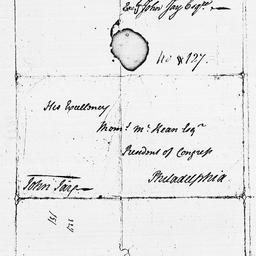 John Jay Esqr.
No. 127.
His Excellency
Thoms. Mc. Kean Esqr
President of Congress
Philadelphia
John Jay